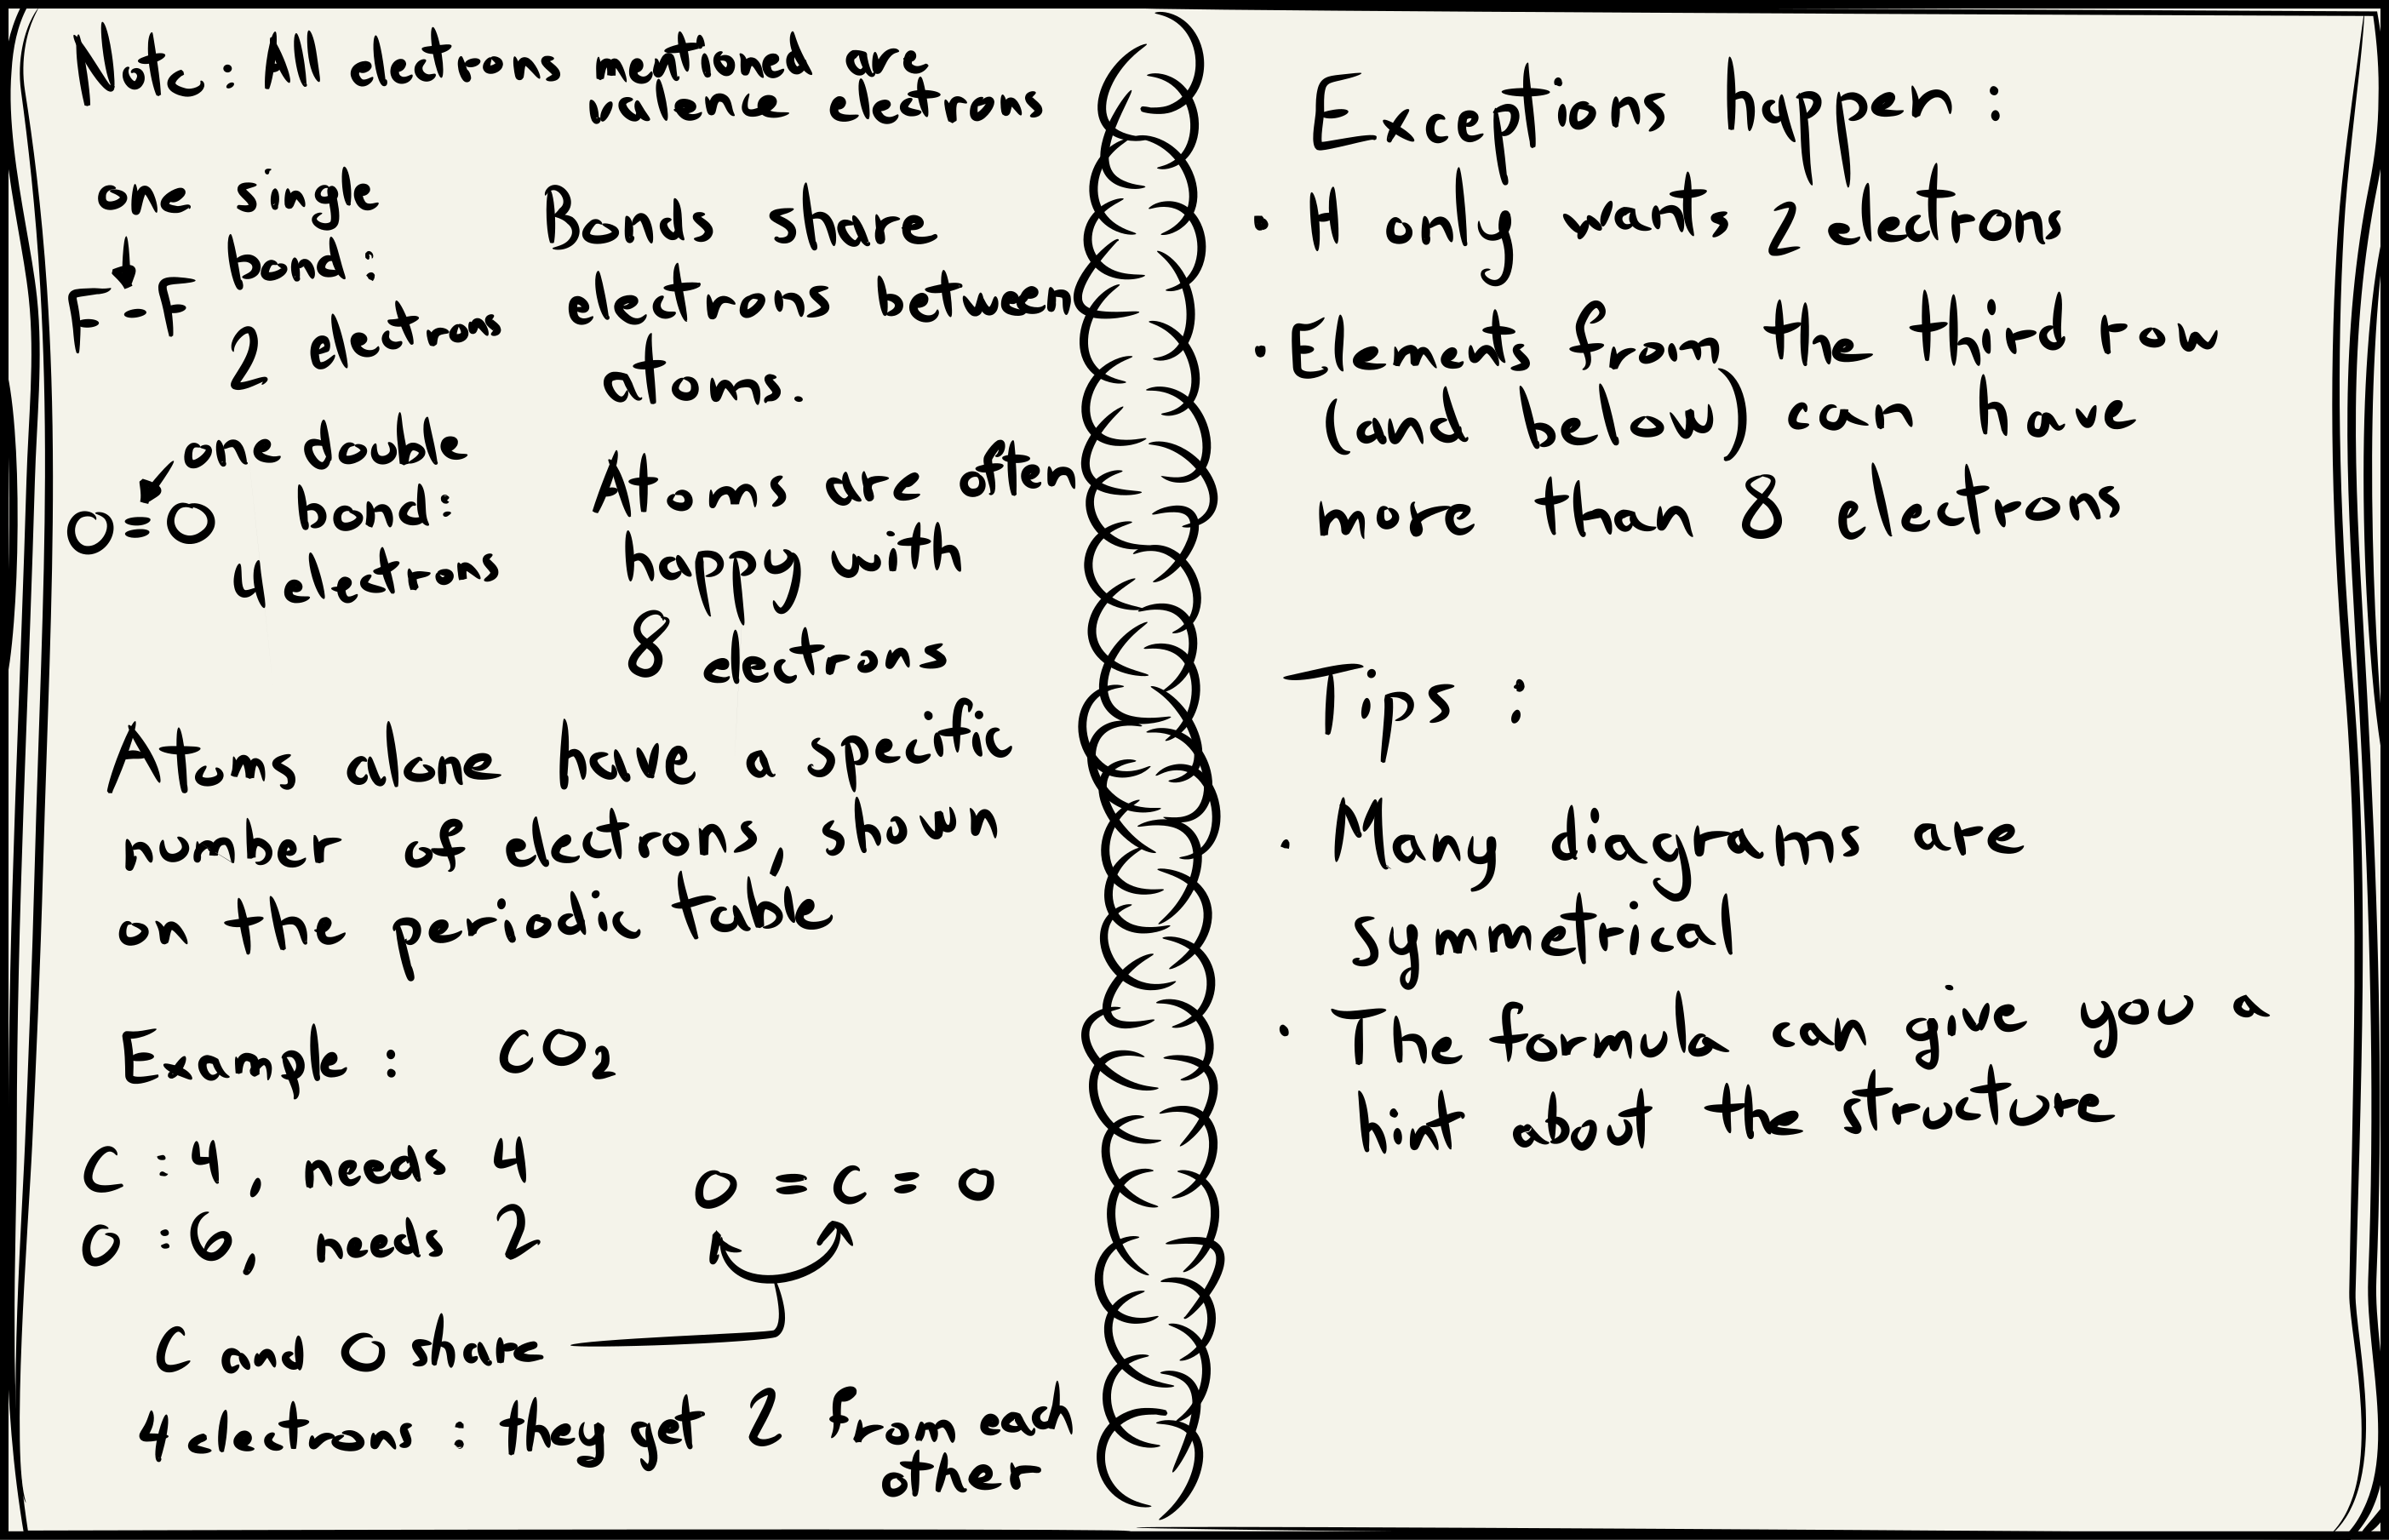 Note : All electrons mentioned are
valence electrons
one single
bond :
F-F
2 electrons
one double
bond:
O=O
4 electrons
Bonds share
electrons between
atoms.
Atoms are often
happy with
8 electrons
Atoms alone have a specific
number of electrons, shown
on the periodic table
Example : CO₂
C : 4, needs 4
O : 6, needs 2
O = C = O
C and O share
4 electrons : they get 2 from each
other
Exceptions happen :
· H only wants 2 electrons
· Elements from the third row
(and below) can have
more than 8 electrons
Tips :
· Many diagrams are
symmetrical
· The formula can give you a
hint about the structure